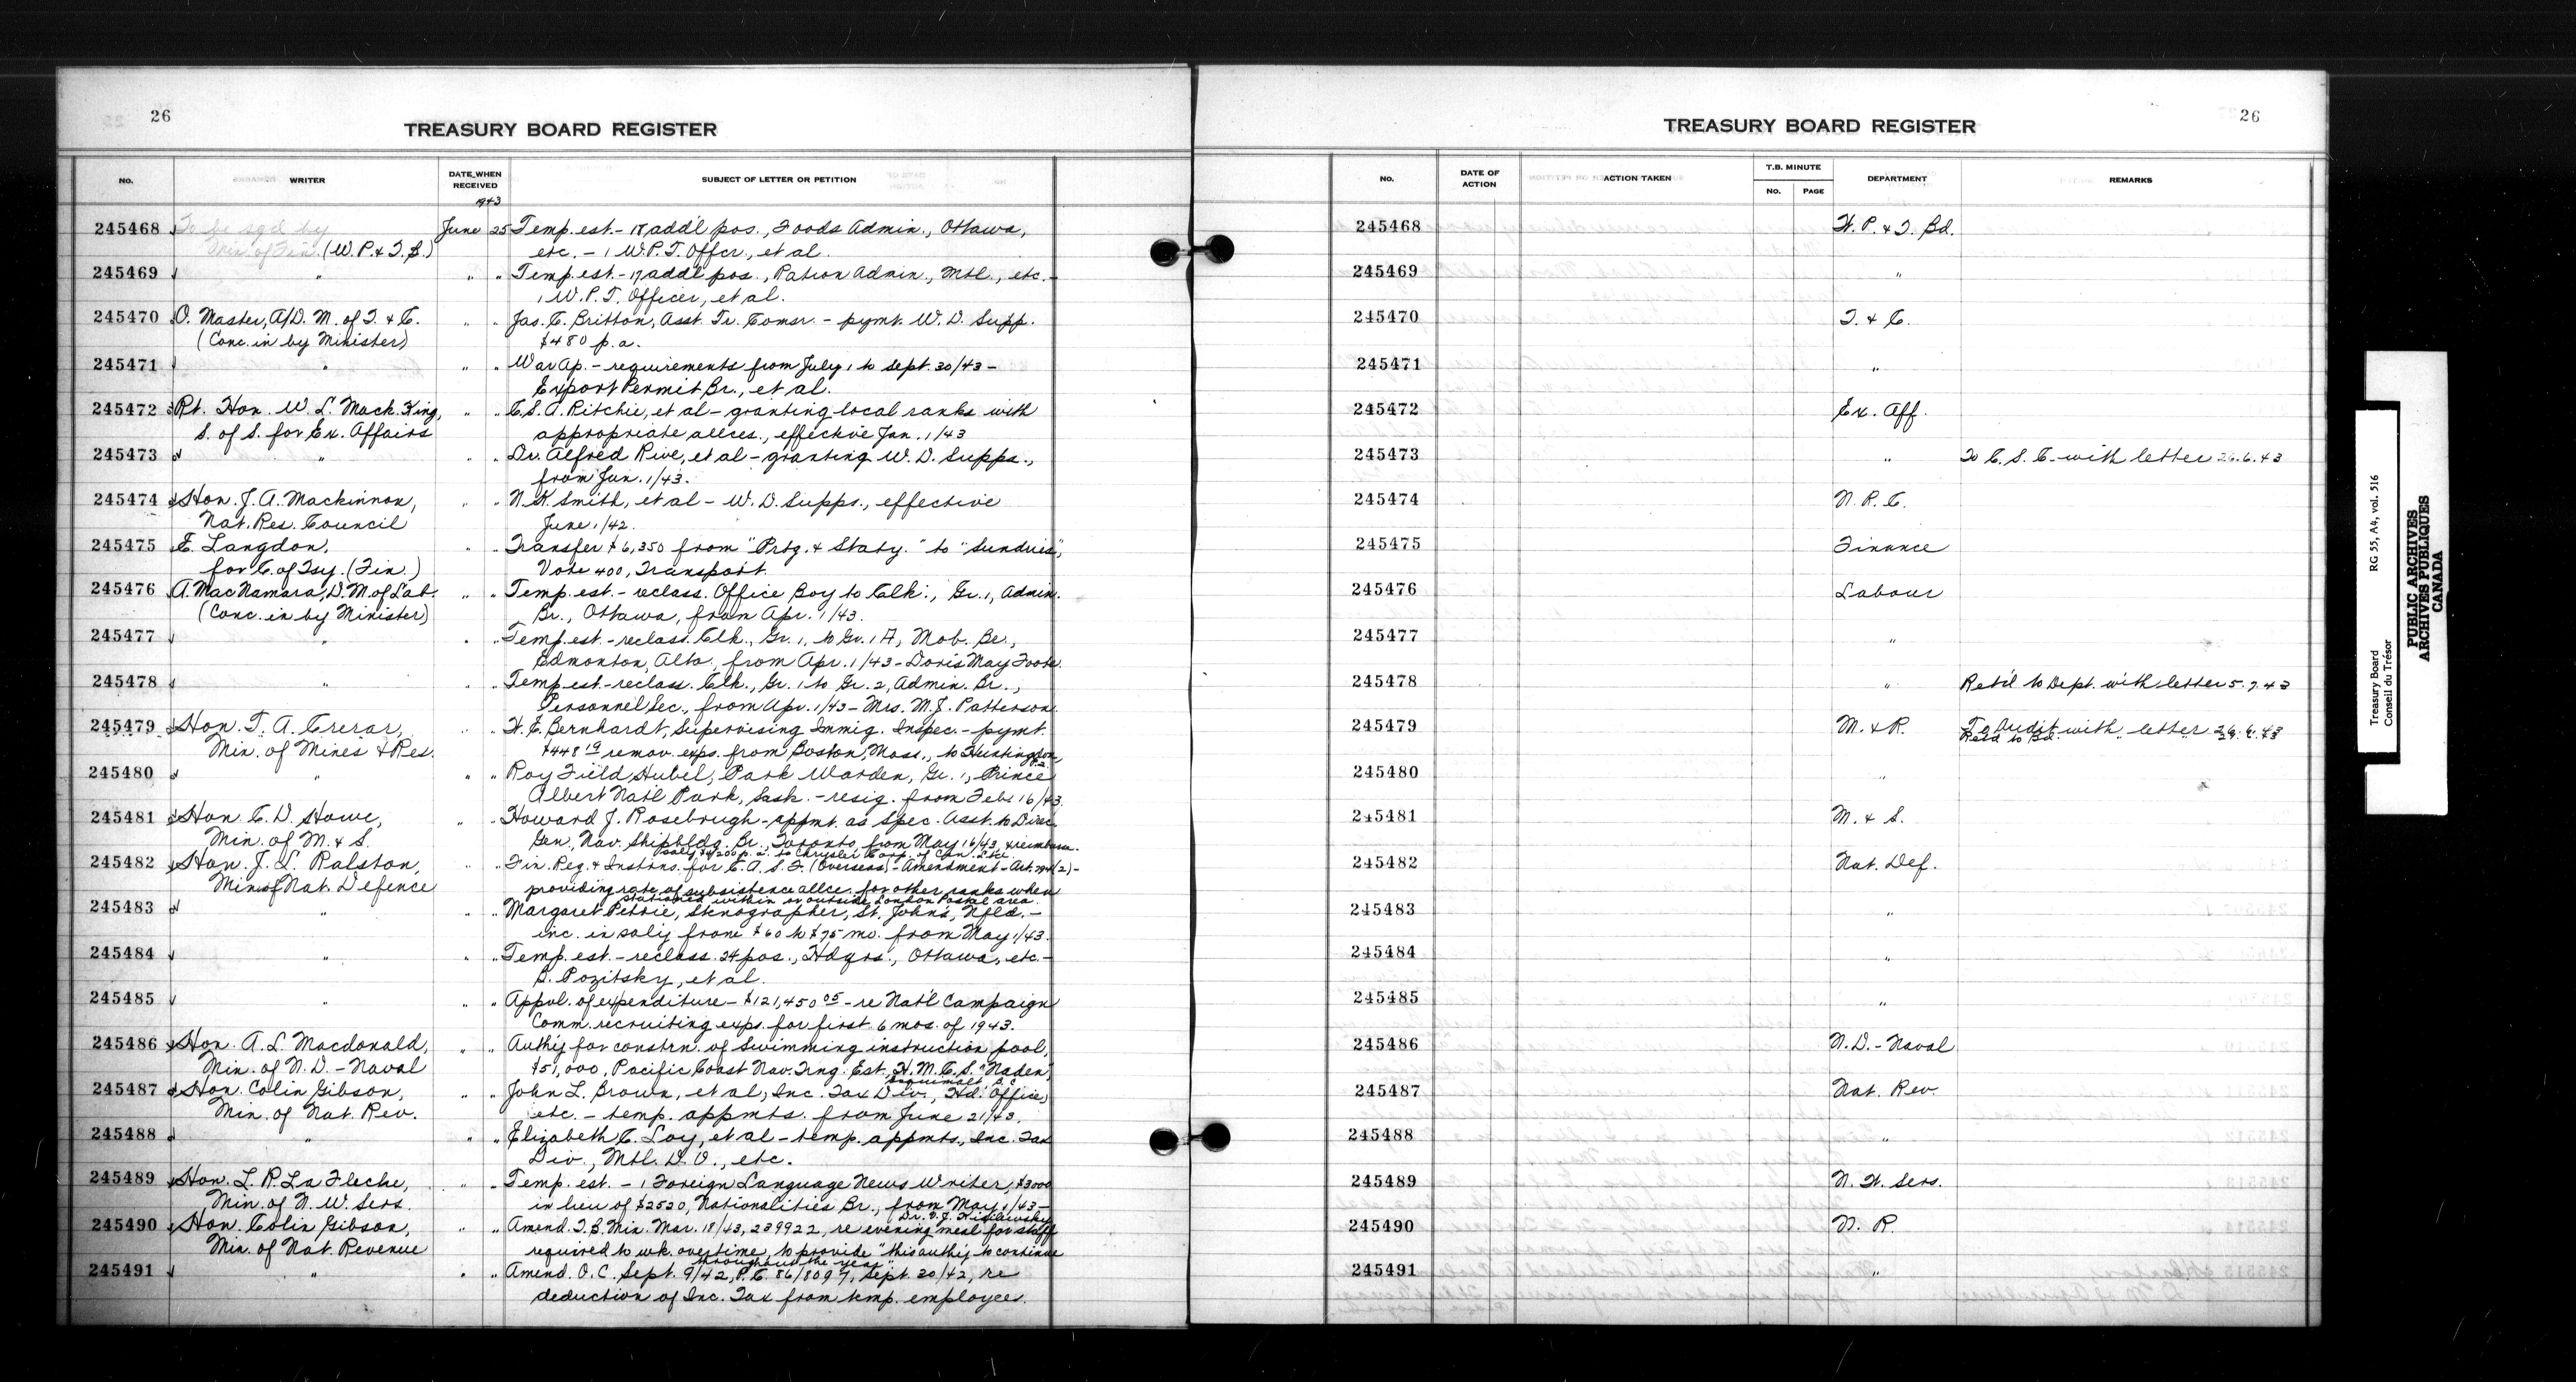 26
TREASURY BOARD REGISTER
No.
WRITER
DATE WHEN RECEIVED
SUBJECT OF LETTER OR PETITION
1943
245468 To be sgd by June 25 Temp. est. - 18 addl pos., Foods Admin., Ottawa,
Min. of Fin. (W. P. & T. B.) etc. - 1 W.P.T. Offcr., et al.
245469 " " " Temp. est. - 17 addl pos., Ration Admin., Mtl., etc. -
1 W. P. T. Officer, et al.
245470 O. Master, A/D. M. of T. & C. " " Jas. C. Britton, Asst. Tr. Comsr. - pymt. W. D. Supp.
(Conc. in by Minister) $480 p. a.
245471 " " " War Ap. - requirements from July 1 to Sept. 30/43 -
Export Permit Br., et al.
245472 Rt. Hon. W. L. Mack. King, " " C. S. A. Ritchie, et al - granting local ranks with
S. of S. for Ex. Affairs appropriate allces., effective Jan. 1/43
245473 " " " Dr. Alfred Rive, et al - granting W. D. Supps.,
from Jan. 1/43.
245474 Hon. J. A. Mackinnon, " " N. K. Smith, et al - W. D. Supps., effective
Nat. Res. Council June 1/42.
245475 C. Langdon, " " Transfer $6,350 from "Prtg. & Staty." to "Sundries",
for C. of Tsy. (Fin.) Vote 400, Transport.
245476 A. MacNamara, D. M. of Lab. " " Temp. est. - reclass. Office Boy to Clk., Gr. 1, Admin.
(Conc. in by Minister) Br., Ottawa, from Apr. 1/43.
245477 " " " Temp. est. - reclass. Clk., Gr. 1, to Gr. 1A, Mob. Br.,
Edmonton, Alta., from Apr. 1/43 - Doris May Foote.
245478 " " " Temp. est. - reclass. Clk., Gr. 1 to Gr. 2, Admin. Br.,
Personnel Sec., from Apr. 1/43 - Mrs. M. J. Patterson
245479 Hon. T. A. Crerar, " " H. C. Bernhardt, Supervising Immig. Inspec. - pymt.
Min. of Mines & Res. $448.19 remov. exps. from Boston, Mass., to Huntingdon
245480 " " " Roy Field Hubel, Park Warden, Gr. 1, Prince
Albert Nat'l Park, Sask. - resig. from Feb. 16/43.
245481 Hon. C. D. Howe, " Howard J. Rosebrugh - appmt. as Spec. Asst. to Direc.
Min. of M. & S. Gen., Nav. Shipbldg. Br., Toronto, from May 16/43, & reimburse.
to Chrysler Corp. of Can. Ltd.
245482 Hon. J. L. Ralston, " " Fin. Reg. & Instrns. for C. A. S. F. (Overseas) - Amendment - Art.
Min. of Nat. Defence providing rate of subsistence allce. for other ranks when
stationed within or outside London Postal area.
245483 " " " Margaret Petrie, Stenographer, St. John's, Nfld. -
inc. in saly from $60 to $75 mo. from May 1/43.
245484 " " " Temp. est. - reclass. 24 pos., Hdqrs., Ottawa, etc. -
Pozitsky, et al.
245485 " " " Appvl. of expenditure - $121,450.05 - re Nat'l Campaign
Comm. recruiting exps. for first 6 mos. of 1943.
245486 Hon. A. L. Macdonald, " " Authy for constrn. of swimming instruction pool,
Min. of N. D. - Naval $51,000, Pacific Coast Nav. Tng. Est. H. M. C. S. "Naden",
Esquimalt, B.C.
245487 Hon. Colin Gibson, " " John L. Brown, et al, Inc. Tax Div., Hd. Office,
Min. of Nat. Rev. etc. - temp. appmts. from June 21/43.
245488 " " " Elizabeth C. Loy, et al - temp. appmts., Inc. Tax
Div., Mtl. D. O., etc.
245489 Hon. L. R. La Fleche, " " Temp. est. - 1 Foreign Language News Writer, $3000
Min. of N. W. Sers. in lieu of $2520, Nationalities Br., from May 1/43 -
245490 Hon. Colin Gibson, " " Amend. T. B. Min. Mar. 18/43, 239922, re evening meal for staff
Min. of Nat. Revenue required to wk. overtime, to provide "this authy to continue
throughout the year"
245491 " " " Amend. O. C. Sept. 9/42, P. C. 86/8097, Sept. 20/42, re
deduction of Inc. Tax from temp. employees.
26
TREASURY BOARD REGISTER
No.
DATE OF ACTION
ACTION TAKEN
T.B. MINUTE
No. PAGE
DEPARTMENT
REMARKS
245468 W. P. & T. Bd.
245469 "
245470 T. & C.
245471 "
245472 Ex. Aff.
245473 " To C. S. C. with letter 26.6.43
245474 N. R. C.
245475 Finance
245476 Labour
245477 "
245478 " Ret'd to Dept. with letter 5.7.43
245479 M. & R. To Audit with letter 26.6.43
Retd to Bd.
245480 "
245481 M. & S.
245482 Nat. Def.
245483 "
245484 "
245485 "
245486 N. D. - Naval
245487 Nat. Rev.
245488 "
245489 N. W. Sers.
245490 N. R.
245491 "
Treasury Board
Conseil du Trésor
RG 55, A4, vol. 516
PUBLIC ARCHIVES
ARCHIVES PUBLIQUES
CANADA